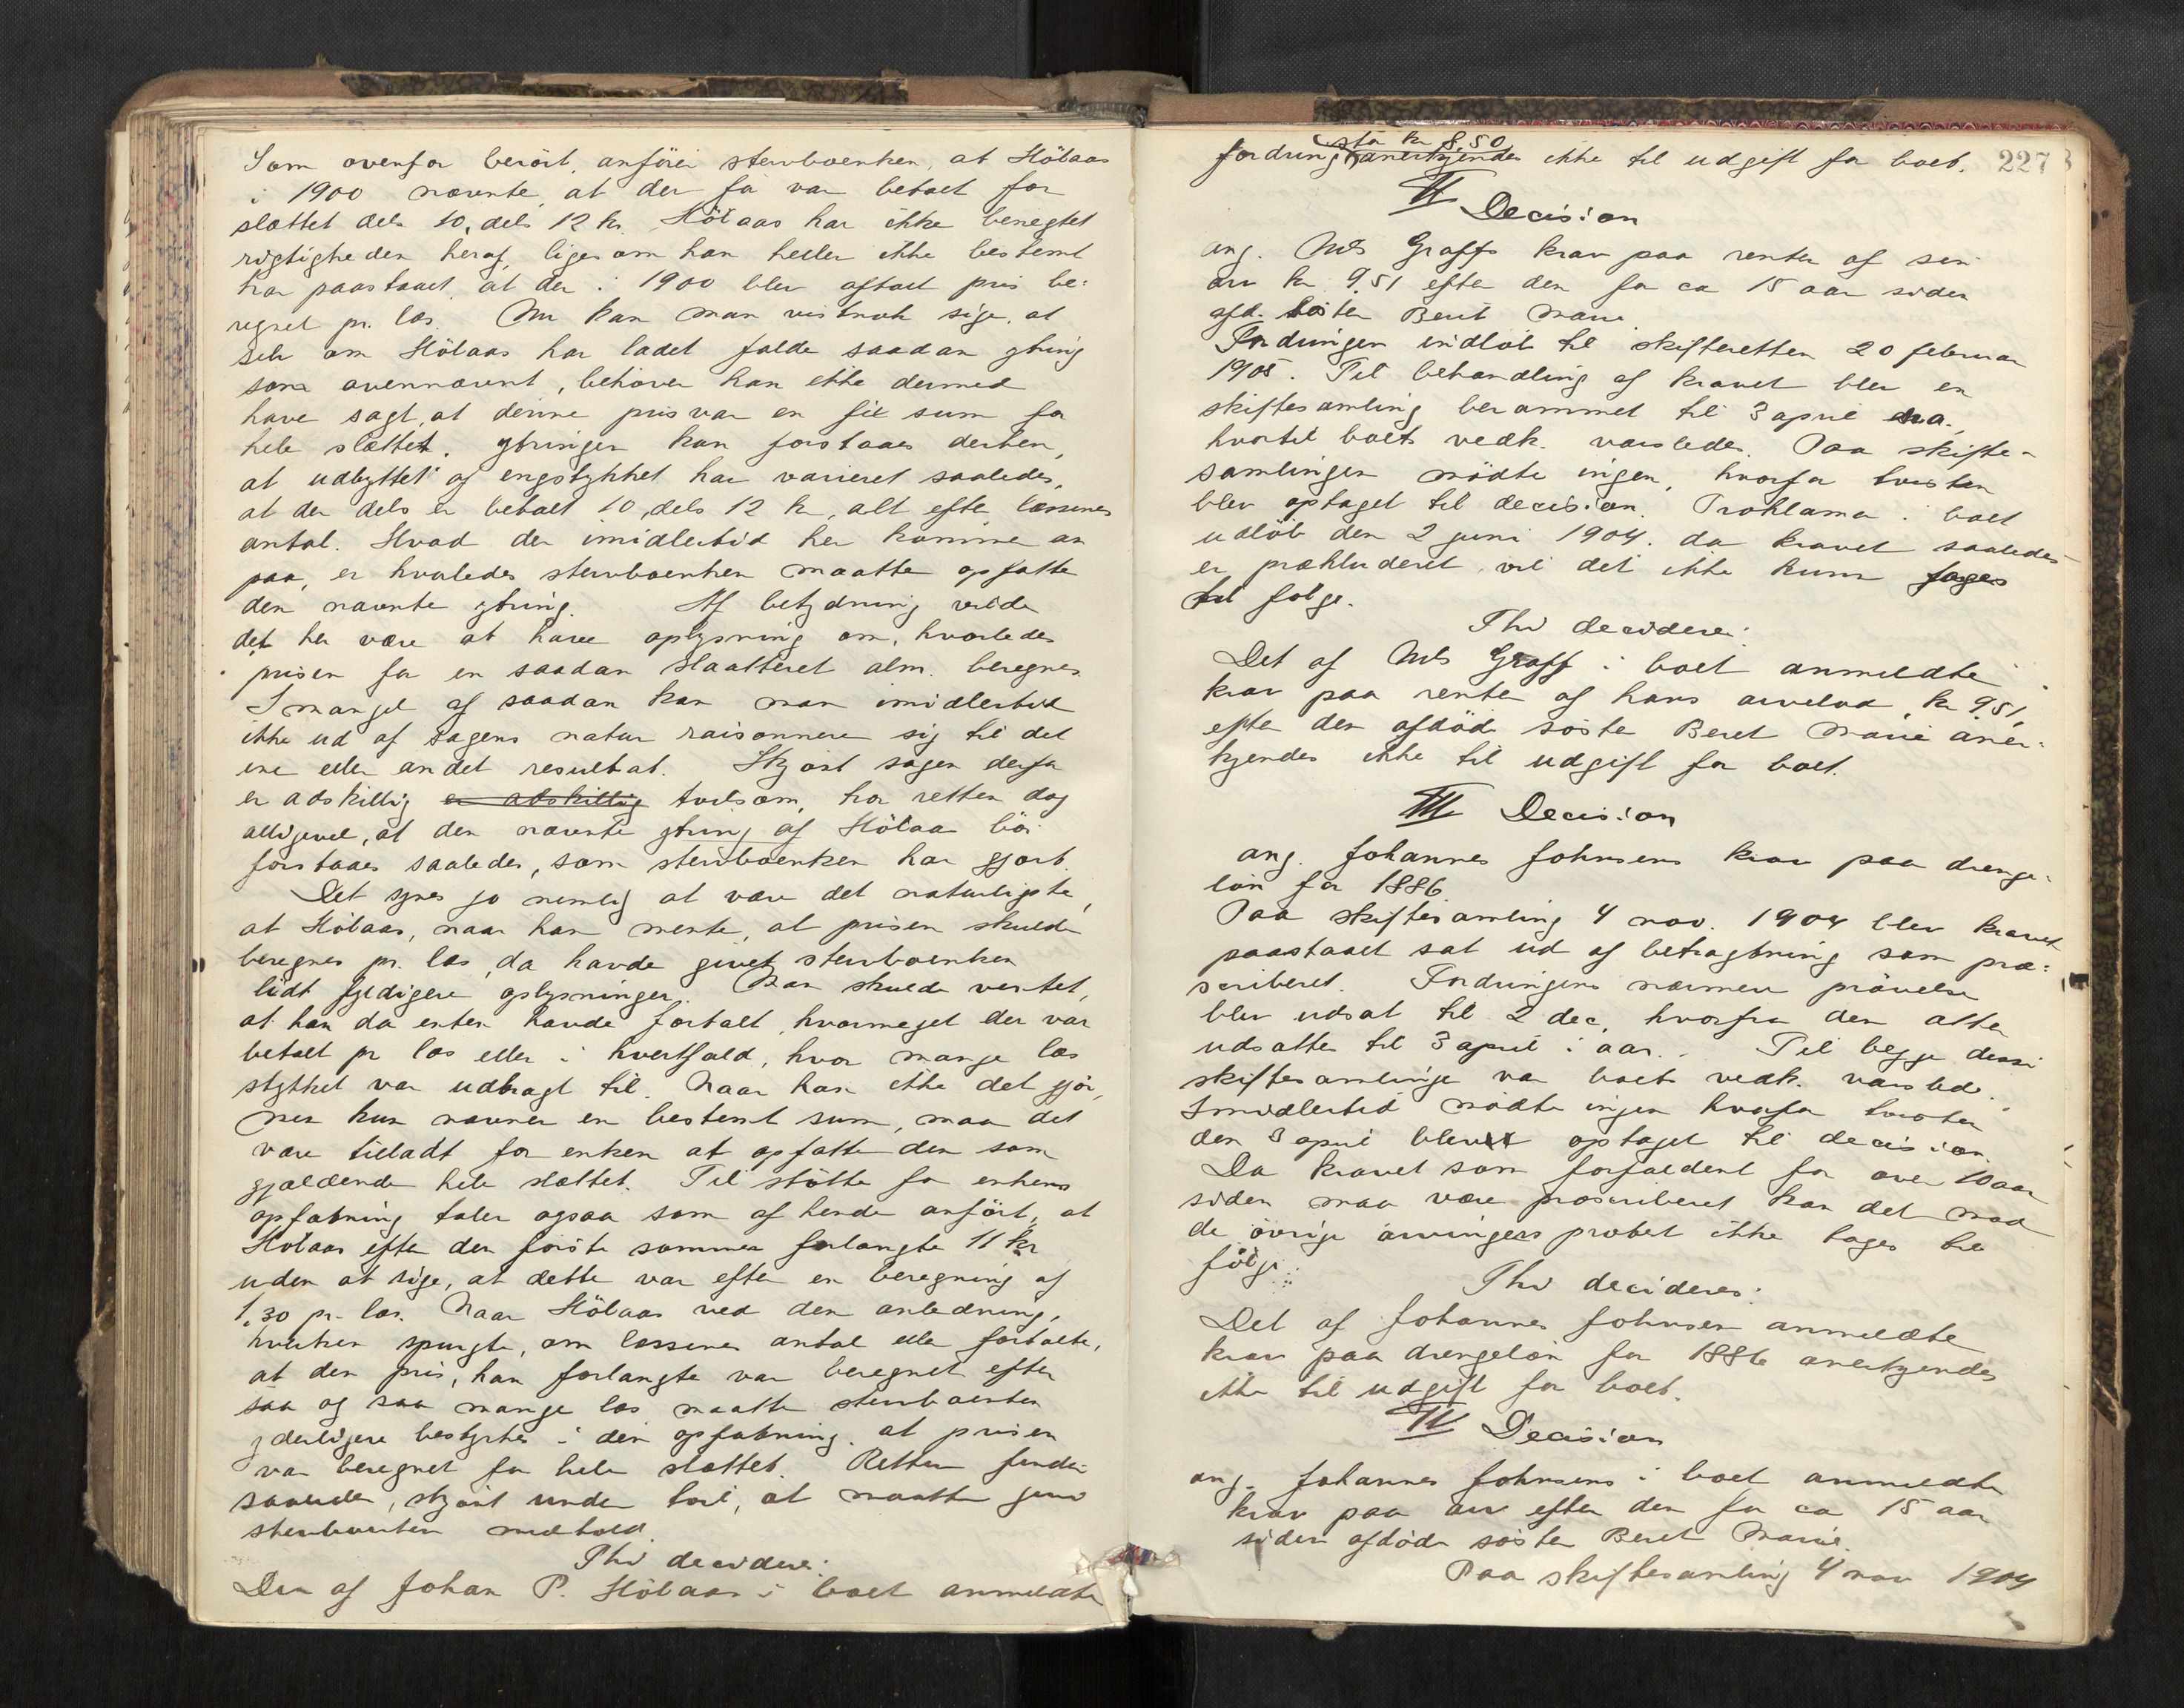 Som ovenfor berört, anförer stervboenken, at Hölaas
i 1900 nævnte, at der för var betalt for
slættet dels 10, dels 12 kr. Hölaas har ikke benegtet
rigtigheden heraf, ligesom han heller ikke bestemt
har paastaaet, at der i 1900 blev aftalt pris be-
regnet pr. læs. Nu kan man vistnok sige, at
selv om Hölaas har ladet falde saadan ytring
som ovennævnt, behöver han ikke dermed
have sagt, at denne pris var en fix sum for
hele slættet. Ytringen kan forstaaes derhen,
at udbyttet af engstykket har varieret saaledes,
at der dels er betalt 10, dels 12 kr, alt efter læssenes
antal. Hvad der imidlertid her kommer an
paa, er hvorledes stervboenken maatte opfatte
den nævnte ytring. Af betydning vilde
det her være at have oplysning om, hvorledes
prisen for en saadan slaatteret alm. beregnes.
I mangel af saadan kan man imidlertid
ikke ud af sagens natur raisonnere sig til det
ene eller andet resultat. Skjönt sagen derfor
er adskillig er adskillig tvilsom, tror retten dog
alligevel, at den nævnte ytring af Hölaas bör
forstaaes saaledes, som stervboenken har gjort.
Det synes jo nemlig at være det naturligste,
at Hölaas, naar han mente, at prisen skulde
beregnes pr. læs, da havde givet stervboenken
lidt fyldigere oplysninger. Man skulde ventet,
at han da enten havde fortalt, hvormeget der var
betalt pr læs eller i hvertfald, hvor mange læs
stykket var udbragt til. Naar han ikke det gjör,
men kun nævner en bestemt sum, maa det
være tilladt for enken at opfatte den som
gjældende hele slættet. Til stötte for enkens
opfatning taler ogsaa som af hende anfört, at
Hölaas efter den förste sommer forlangte 11 kr
uden at sige, at dette var efter en beregning af
1,30 pr. læs. Naar Hölaas ved den anledning,
hverken spurgte, om læssenes antal eller fortalte,
at den pris, han forlangte var beregnet efter
saa og saa mange læs maatte stervboenken
yderligere bestyrkes i den opfatning, at prisen
var beregnet for hele slættet. Retten finder
saaledes, skjönt under tvil, at maatte give
stervboenken medhold.
Thi decideres:
Den af Johan P. Hölaas i boet anmeldte
227
stor kr 8,50
fordring anerkjendes ikke til udgift for boet.
II Decision
ang. Nils Graffs krav paa renter af sin
arv kr 9,51 efter den for ca 15 aar siden
afd. söster Berit Marie.
Fordringen indlöb til skifteretten 20 februar
1905. Til behandling af kravet blev en
skiftesamling berammet til 3 april d.a.,
hvortil boets vedk. varsledes. Paa skifte-
samlingen mödte ingen, hvorfor tvisten
blev optaget til decision. Proklama i boet
udlöb den 2 juni 1904. da kravet saaledes
er prækluderet, vil det ikke kunne tages
til fölge.
Thi decideres:
Det af Nils Graff i boet anmeldte
krav paa renter af hans arvelod, kr 9,51,
efter den afdöde söster Beret Marie aner-
kjendes ikke til udgift for boet.
III Decision
ang. Johannes Johnsens krav paa drenge-
lön for 1886
Paa skiftesamling 4 nov. 1904 blev kravet
paastaaet sat ud af betragtning som præ-
scriberet. Fordringens nærmere prövelse
blev udsat til 2 dec, hvorfra den atter
udsattes til 3 april i aar. Til begge disse
skiftesamlinger var boets vedk. varslede.
Imidlertid mödte ingen hvorfor tvisten
den 3 april blev optaget til decision.
Da kravet som forfaldent for over 10 aar
siden maa være præscriberet kan det mod
de övrige arvingers protest ikke tages til
fölge.
Thi decideres:
Det af Johannes Johnsen anmeldte
krav paa drengelön for 1886 anerkjendes
ikke til udgift for boet.
IV Decision
ang. Johannes Johnsens i boet anmeldte
krav paa arv efter den for ca 15 aar
siden afdöde söster Beret Marie.
Paa skiftesamling 4 nov 1904